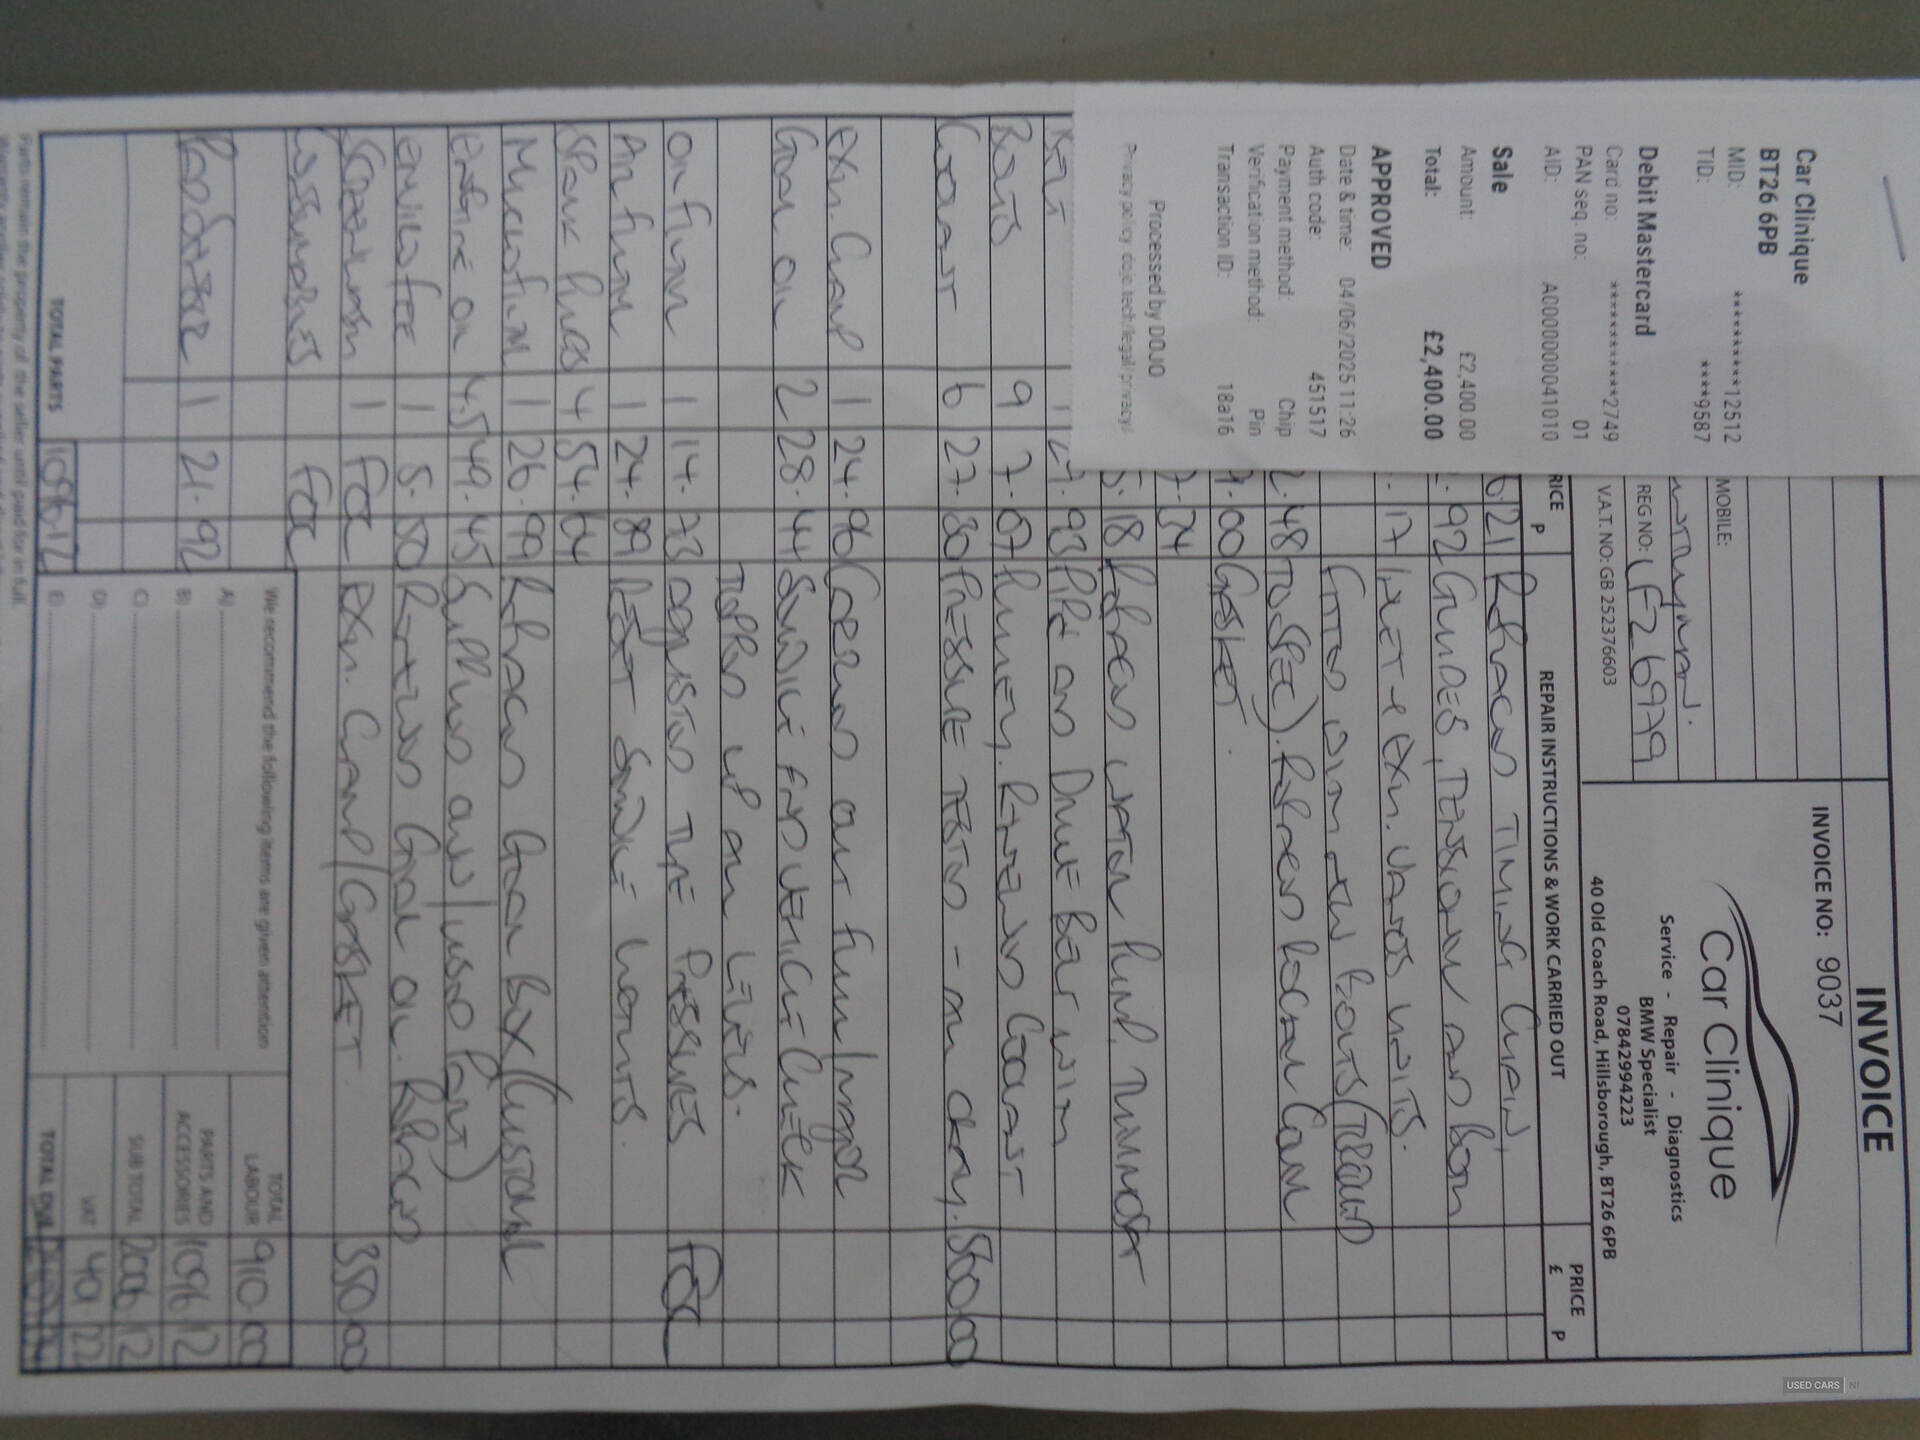 Car Clinique
BT26 6PB
MID: **********12512
TID: ****9587
Debit Mastercard
Card no: ************2749
PAN seq. no: 01
AID: A0000000041010
Sale
Amount: £2,400.00
Total: £2,400.00
APPROVED
Date & time: 04/06/2025 11:26
Auth code: 451517
Payment method: Chip
Verification method: Pin
Transaction ID: 18a16
Processed by DOJO
Privacy policy dojo.tech/legal/privacy/
INVOICE
INVOICE NO: 9037
Car Clinique
Service - Repair - Diagnostics
BMW Specialist
07842994223
40 Old Coach Road, Hillsborough, BT26 6PB
MOBILE:
REG NO: LF26979
V.A.T. NO: GB 252376603
RICE P
REPAIR INSTRUCTIONS & WORK CARRIED OUT
PRICE £ P
6.21 REPLACED TIMING CHAIN,
.92 GUIDES, TENSIONER AND BOTH
.17 INLET & EXH. VANOS UNITS.
FITTED WITH NEW BOLTS (TORQUED
2.48 TO SPEC). REPLACED ROCKER COVER
9.00 GASKET.
7.34
5.18 REPLACED WATER PUMP, THERMOSTAT
BELT 1 27.93 PIPE AND DRIVE BELT WITH
BOLTS 9 7.67 PULLEY. RENEWED COOLANT
COOLANT 6 27.30 PRESSURE TESTED - ALL OKAY. 560.00
EXH. CLAMP 1 24.96 CARRIED OUT FULL/MAJOR
GEAR OIL 2 28.44 SERVICE AND VEHICLE CHECK
TOPPED UP ALL LEVELS.
OIL FILTER 1 14.73 ADJUSTED TYRE PRESSURES FOC
AIR FILTER 1 24.89 RESET SERVICE LIGHTS.
SPARK PLUGS 4 54.64
MICROFILTER 1 26.99 REPLACED GEAR BOX (CUSTOMER
ENGINE OIL 4.5 49.45 SUPPLIED OWN/USED PART)
ENVIRO FEE 1 5.50 REFILLED GEAR OIL. REPLACED
SCREENWASH 1 FOC EXH. CLAMP/GASKET. 350.00
CONSUMABLES FOC
1 21.92
TOTAL PARTS 1096.12
We recommend the following items are given attention
A)
B)
C)
D)
E)
TOTAL LABOUR 910.00
PARTS AND ACCESSORIES 1096.12
SUB TOTAL 2006.12
VAT 401.22
TOTAL DUE 2407.34
Parts remain the property of the seller until paid for in full.
USED CARS NI